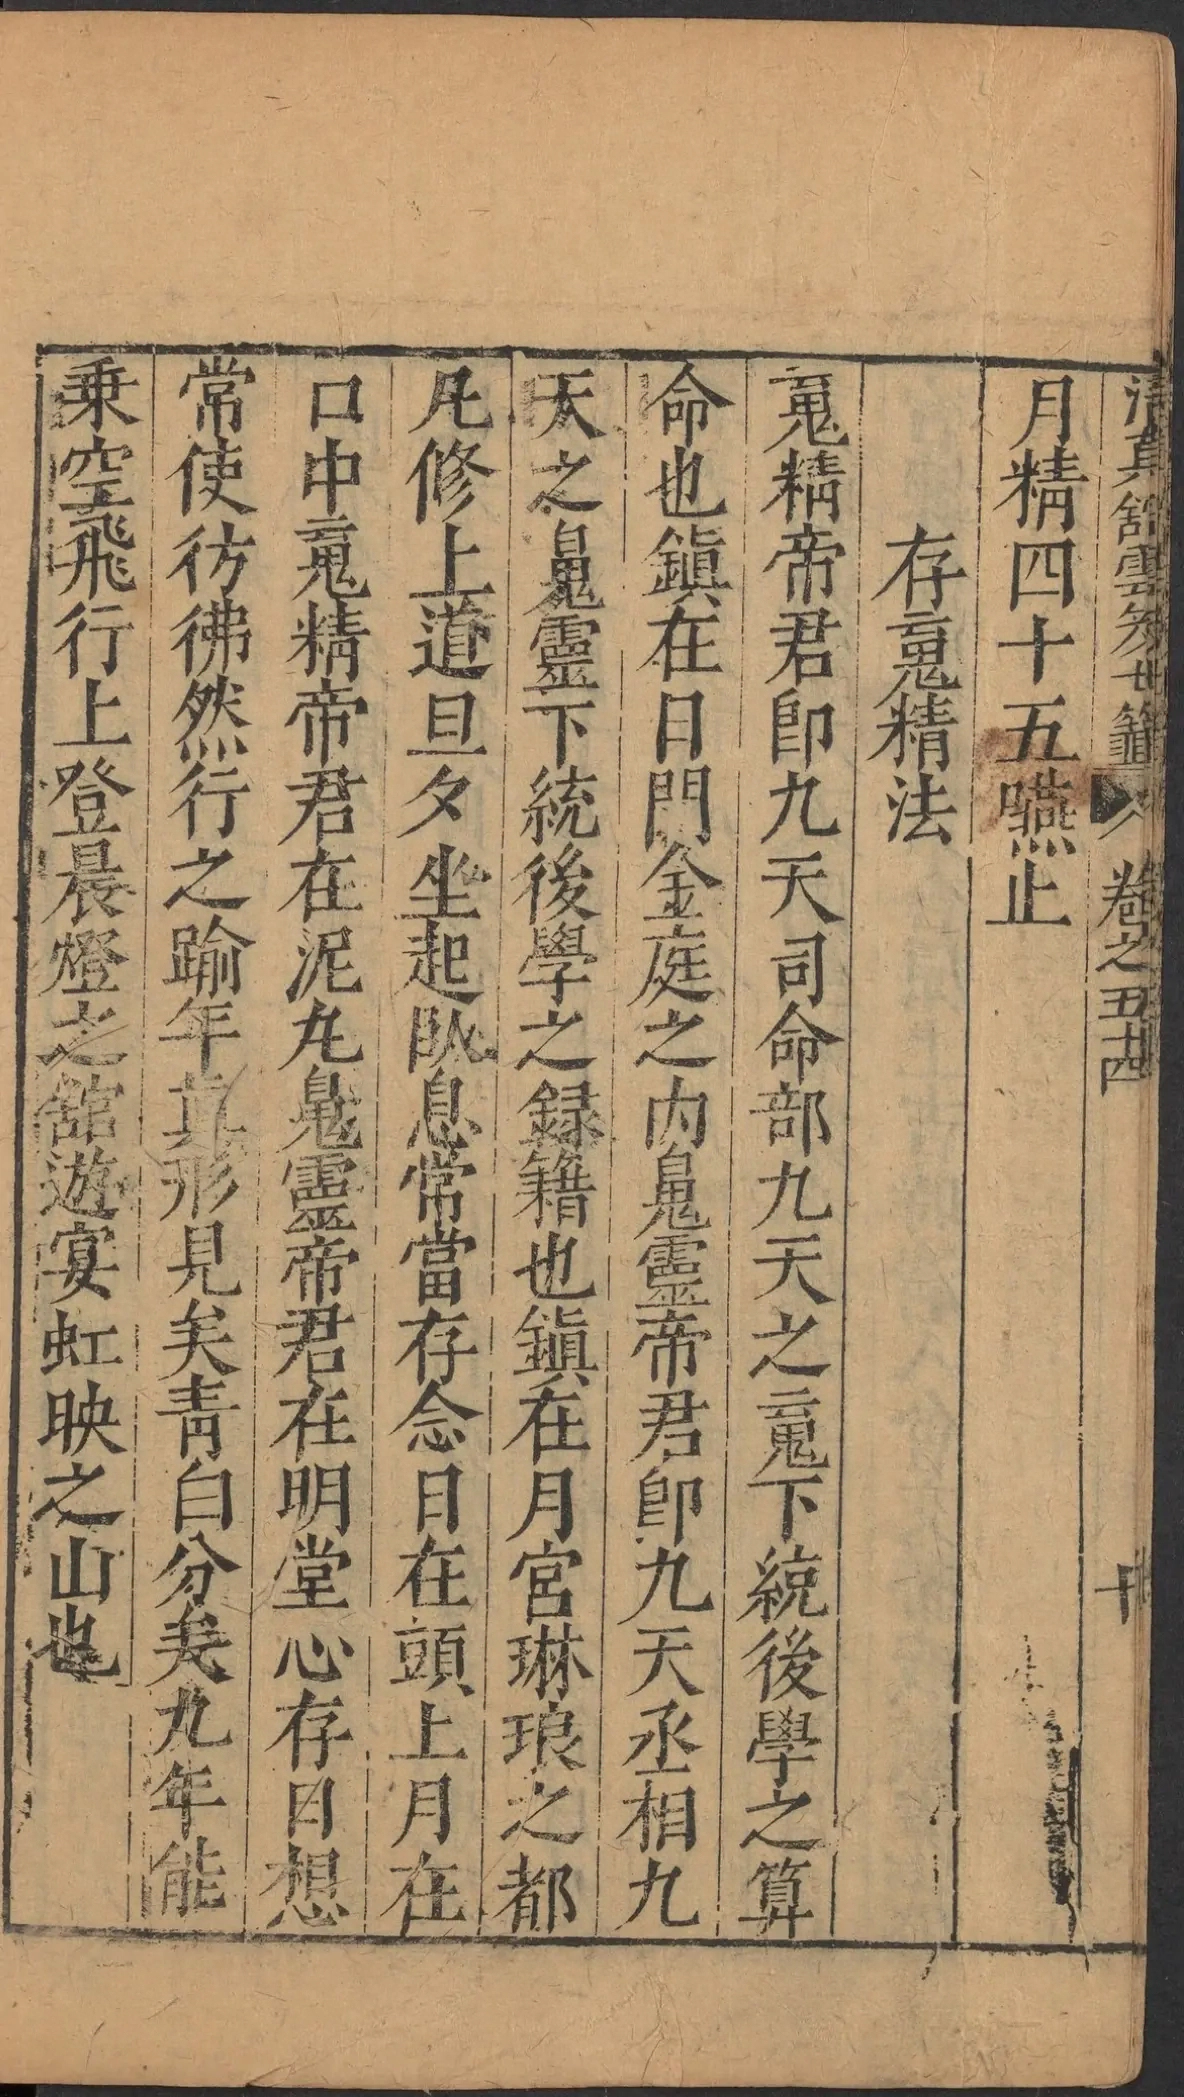 清真舘雲笈七籤 卷之五十四 十
月精四十五嚥止
存䰟精法
䰟精帝君即九天司命部九天之䰟下統後學之算
命也鎮在日門金庭之内魄靈帝君即九天丞相九
天之魄靈下統後學之録籍也鎮在月宮琳琅之都
凡修上道旦夕坐起臥息常當存念日在頭上月在
口中䰟精帝君在泥丸魄靈帝君在明堂心存日想
常使彷彿然行之踰年真形見矣青白分矣九年能
乗空飛行上登晨燈之舘遊宴虹映之山也